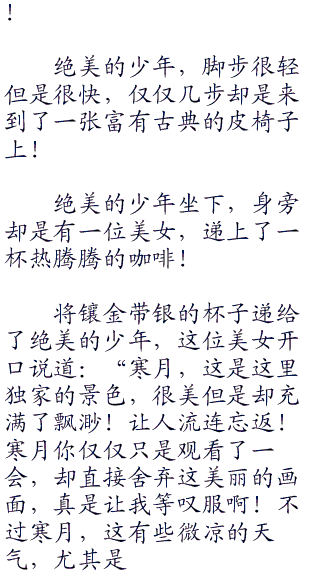 ！
绝美的少年，脚步很轻
但是很快，仅仅几步却是来
到了一张富有古典的皮椅子
上！
绝美的少年坐下，身旁
却是有一位美女，递上了一
杯热腾腾的咖啡！
将镶金带银的杯子递给
了绝美的少年，这位美女开
口说道：“寒月，这是这里
独家的景色，很美但是却充
满了飘渺！让人流连忘返！
寒月你仅仅只是观看了一
会，却直接舍弃这美丽的画
面，真是让我等叹服啊！不
过寒月，这有些微凉的天
气，尤其是